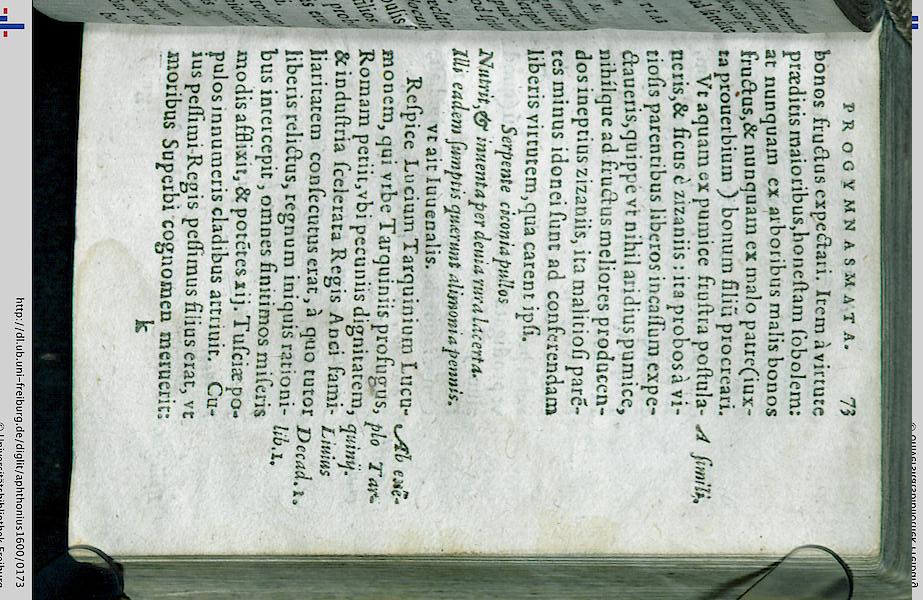 PROGYMNASMATA. 73
bonos fructus expectari. Item à virtute
præditis maioribus, honestam sobolem:
at nunquam ex arboribus malis bonos
fructus, & nunquam ex malo patre (iux-
ta prouerbium) bonum filiũ procreari.
Vt aquam ex pumice frustra postula-
A simili.
ueris, & ficus è zizaniis: ita probos à vi-
tiosis parentibus liberos incassum expe-
ctaueris, quippe vt nihil aridius pumice,
nihilque ad fructus meliores producen-
dos ineptius zizaniis, ita malitiosi parẽ-
tes minus idonei sunt ad conferendam
liberis virtutem, qua carent ipsi.
Serpente ciconia pullos
Nutrit, & inuenta per deuia rura lacerta.
Illi eadem sumptis quærunt alimonia pennis.
vt ait Iuuenalis.
Respice Lucium Tarquinium Lucu-
Ab exẽ-
monem, qui vrbe Tarquiniis profugus,
plo Tar-
Romam petiit, vbi pecuniis dignitatem,
quinij.
& industria scelerata Regis Anci fami-
Liuius
liaritatem consecutus erat, à quo tutor
Decad. 1.
liberis relictus, regnum iniquis rationi-
lib. 1.
bus intercepit, omnes finitimos miseris
modis afflixit, & potẽtes xij. Tusciæ po-
pulos innumeris cladibus attriuit. Cu-
ius pessimi Regis pessimus filius erat, vt
moribus Superbi cognomen meruerit:
k
http://dl.ub.uni-freiburg.de/diglit/aphthonius1600/0173
© Universitätsbibliothek Freiburg